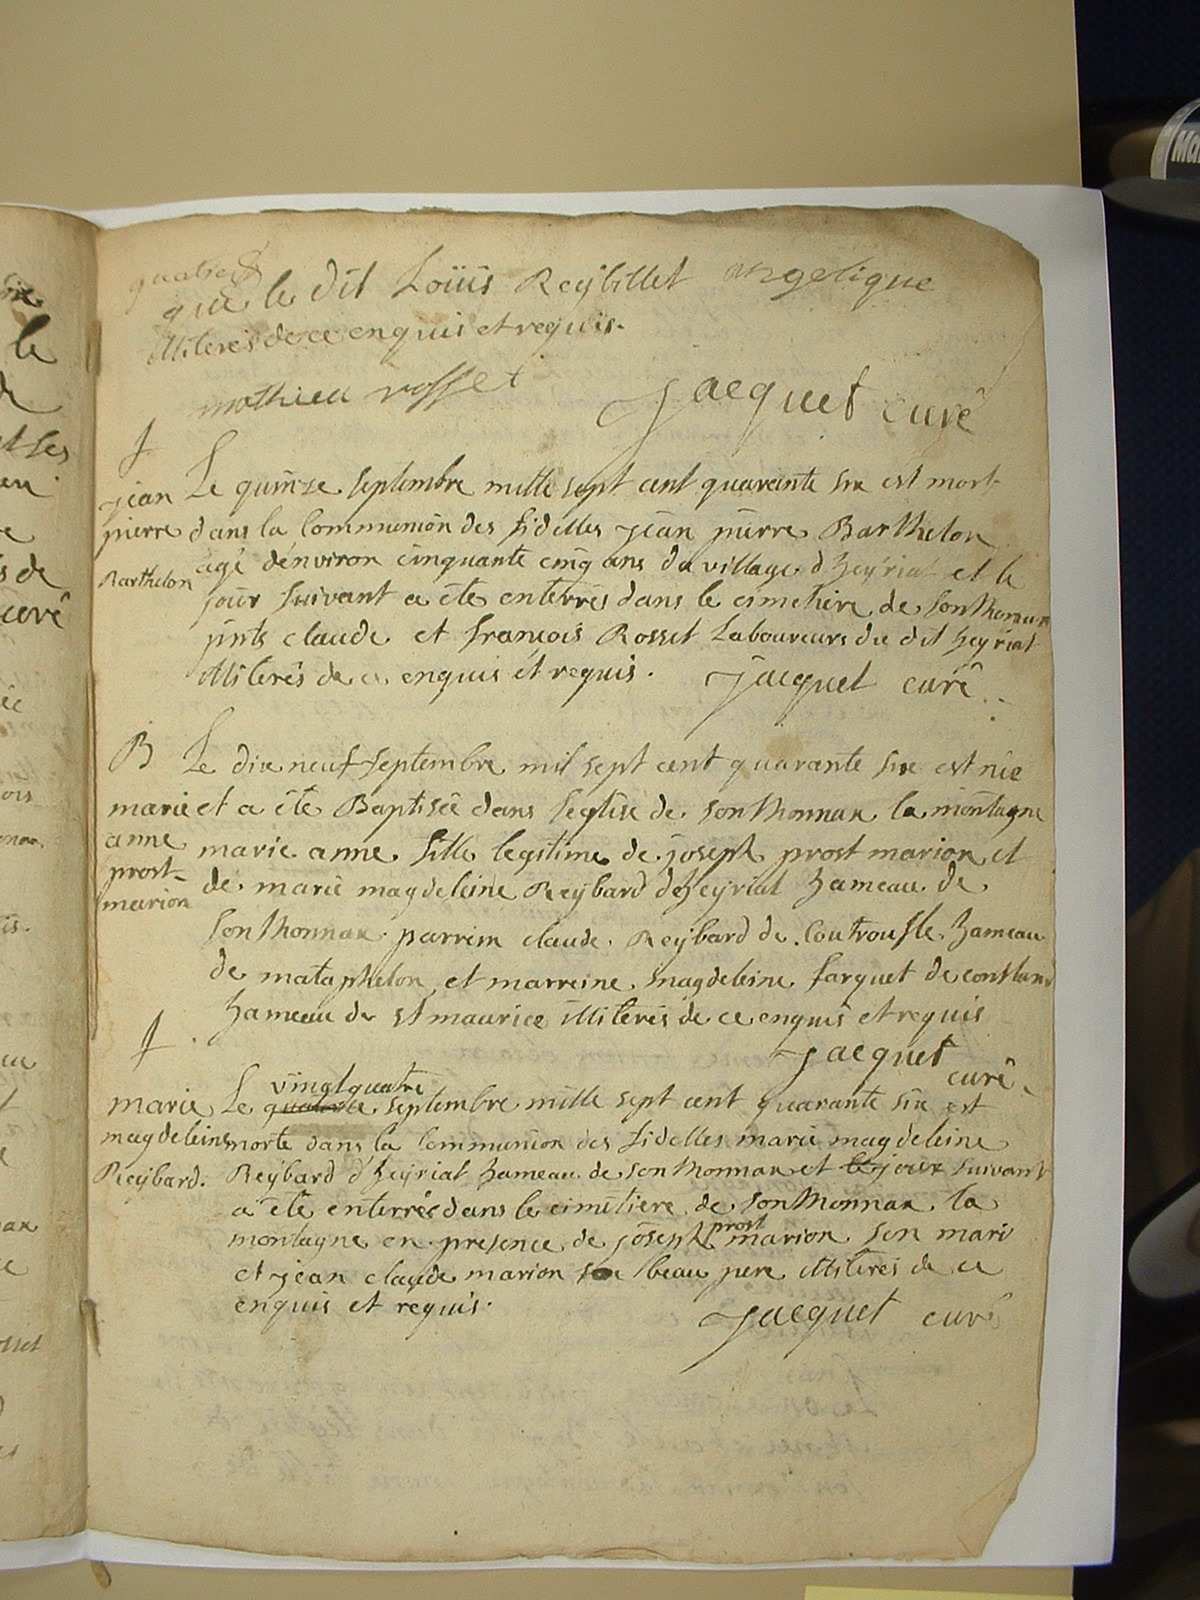 que le dit Loüis Reÿbillet angelique
illiterés de ce enquis et requis.
mathieu rosset
Jacquet curé
Jean
pierre
Barthelon
Le quinze septembre mille sept cent quarante six est mort
dans la Communion des fidelles jean pierre Barthelon
agé dénviron cinquante cinq ans du village d'heÿriat et le
jour suivant a été enterrés dans le cimetiere de sonthonnax
pnts claude et françois Rosset Laboureurs du dit heyriat
illiterés de ce enquis et requis. Jacquet curé
B
marie
anne
prost
marion
Le dix neuf septembre mil sept cent quarante six est née
et a été Baptisée dans l'eglise de sonthonnax la montagne
marie anne fille legitime de joseph prost marion et
de marie magdeleine Reÿbard dheyriat hameau de
sonthonnax parrein claude Reÿbard de hameau
de mataphelon et marreine magdeleine farguet de
hameau de st maurice illiterés de ce enquis et requis
Jacquet
curé
marie
magdeleine
Reÿbard.
vingt quatre
Le septembre mille sept cent quarante six est
morte dans la Communion des fidelles marie magdeleine
Reÿbard d'heÿriat hameau de sonthonnax et le jour suivant
a été enterrée dans le cimetiere de sonthonnax la
montagne en presence de joseph prost marion son mari
et jean claude marion son beau pere illiterés de ce
enquis et requis.
Jacquet curé